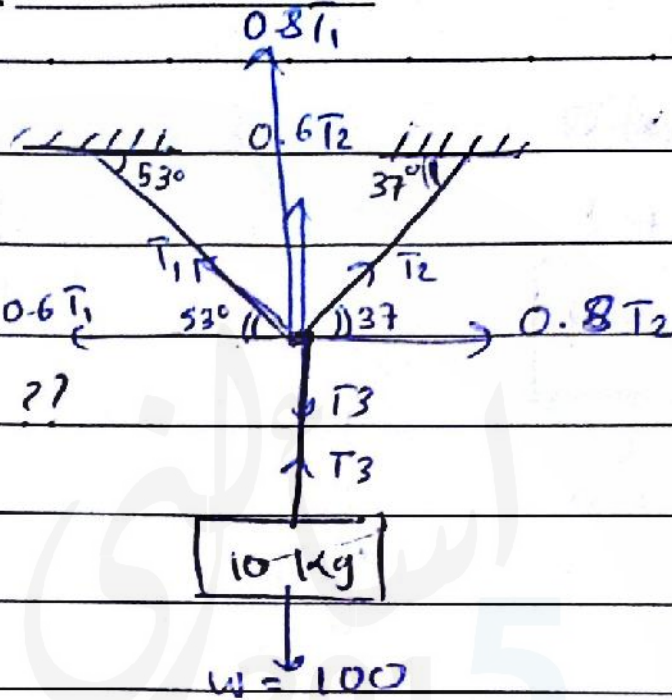 0.8T₁
0.6T₂
53°
37°
T₁
T₂
0.6T₁
53°
37
0.8T₂
??
T3
T3
10 kg
W = 100